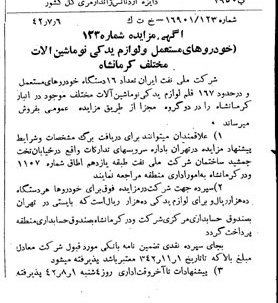 دایره اردنانس ژاندارمری کل کشور
شماره ۱۶۹۰۱/۱۲۳ - خ ت ك ۴۲/۷/۶
آگهی مزایده شماره ۱۳۳
(خودروهای مستعمل ولوازم یدکی نوماشین آلات
مختلف کرمانشاه
شرکت ملی نفت ایران تعداد ۱۶ دستگاه خودروهای مستعمل
و درحدود ۱۶۷ قلم لوازم یدکی نوماشین آلات مختلف موجود در انبار
کرمانشاه را در دو گروه مجزا از طریق مزایده عمومی بفروش
میرساند
۱) علاقمندان میتوانند برای دریافت برگ مشخصات وشرایط
پیشنهاد مزایده در تهران باداره سرویسهای تدارکات واقع درخیابان تخت
جمشید ساختمان شرکت ملی نفت طبقه یازدهم اطاق شماره ۱۱۰۷
ودر کرمانشاه به امور اداری منطقه مراجعه نمایند
۲) سپرده جهت شرکت در مزایده فوق برای خودروها هر دستگاه
ده هزار ریال و برای لوازم یدکی ده هزار ریال است که بایستی در تهران
بصندوق حسابداری مرکزی شرکت و در کرمانشاه بصندوق حسابداری منطقه
پرداخت گردد
بجای سپرده نقدی تضمین نامه بانکی مورد قبول شرکت معادل
مبلغ بالا که تا تاریخ ۳۴۲/۱۱/۱ معتبر باشد پذیرفته میشود
۳) پیشنهادات تا آخروقت اداری روز ۴ شنبه ۴۲/۸/۱ پذیرفته